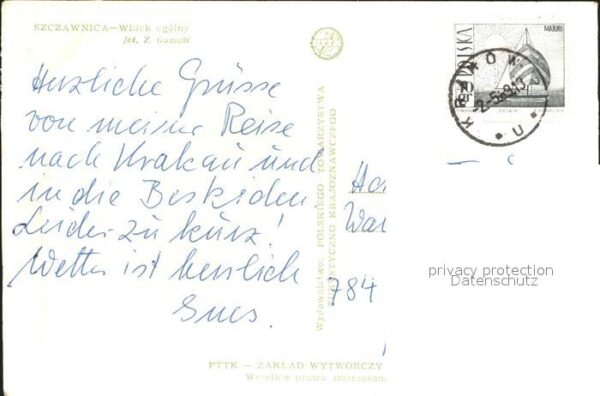 SZCZAWNICA—Widok ogólny
fot. Z. Gamski
Herzliche Grüsse
von meiner Reise
nach Krakau und
in die Beskiden
Leider zu kurz!
Wetter ist herrlich
Wydawnictwo: POLSKIEGO TOWARZYSTWA
TURYSTYCZNO KRAJOZNAWCZEGO
MAZURY
POLSKA
KRAKÓW
784
privacy protection
Datenschutz
PTTK — ZAKŁAD WYTWÓRCZY
Wszelkie prawa zastrzeżone